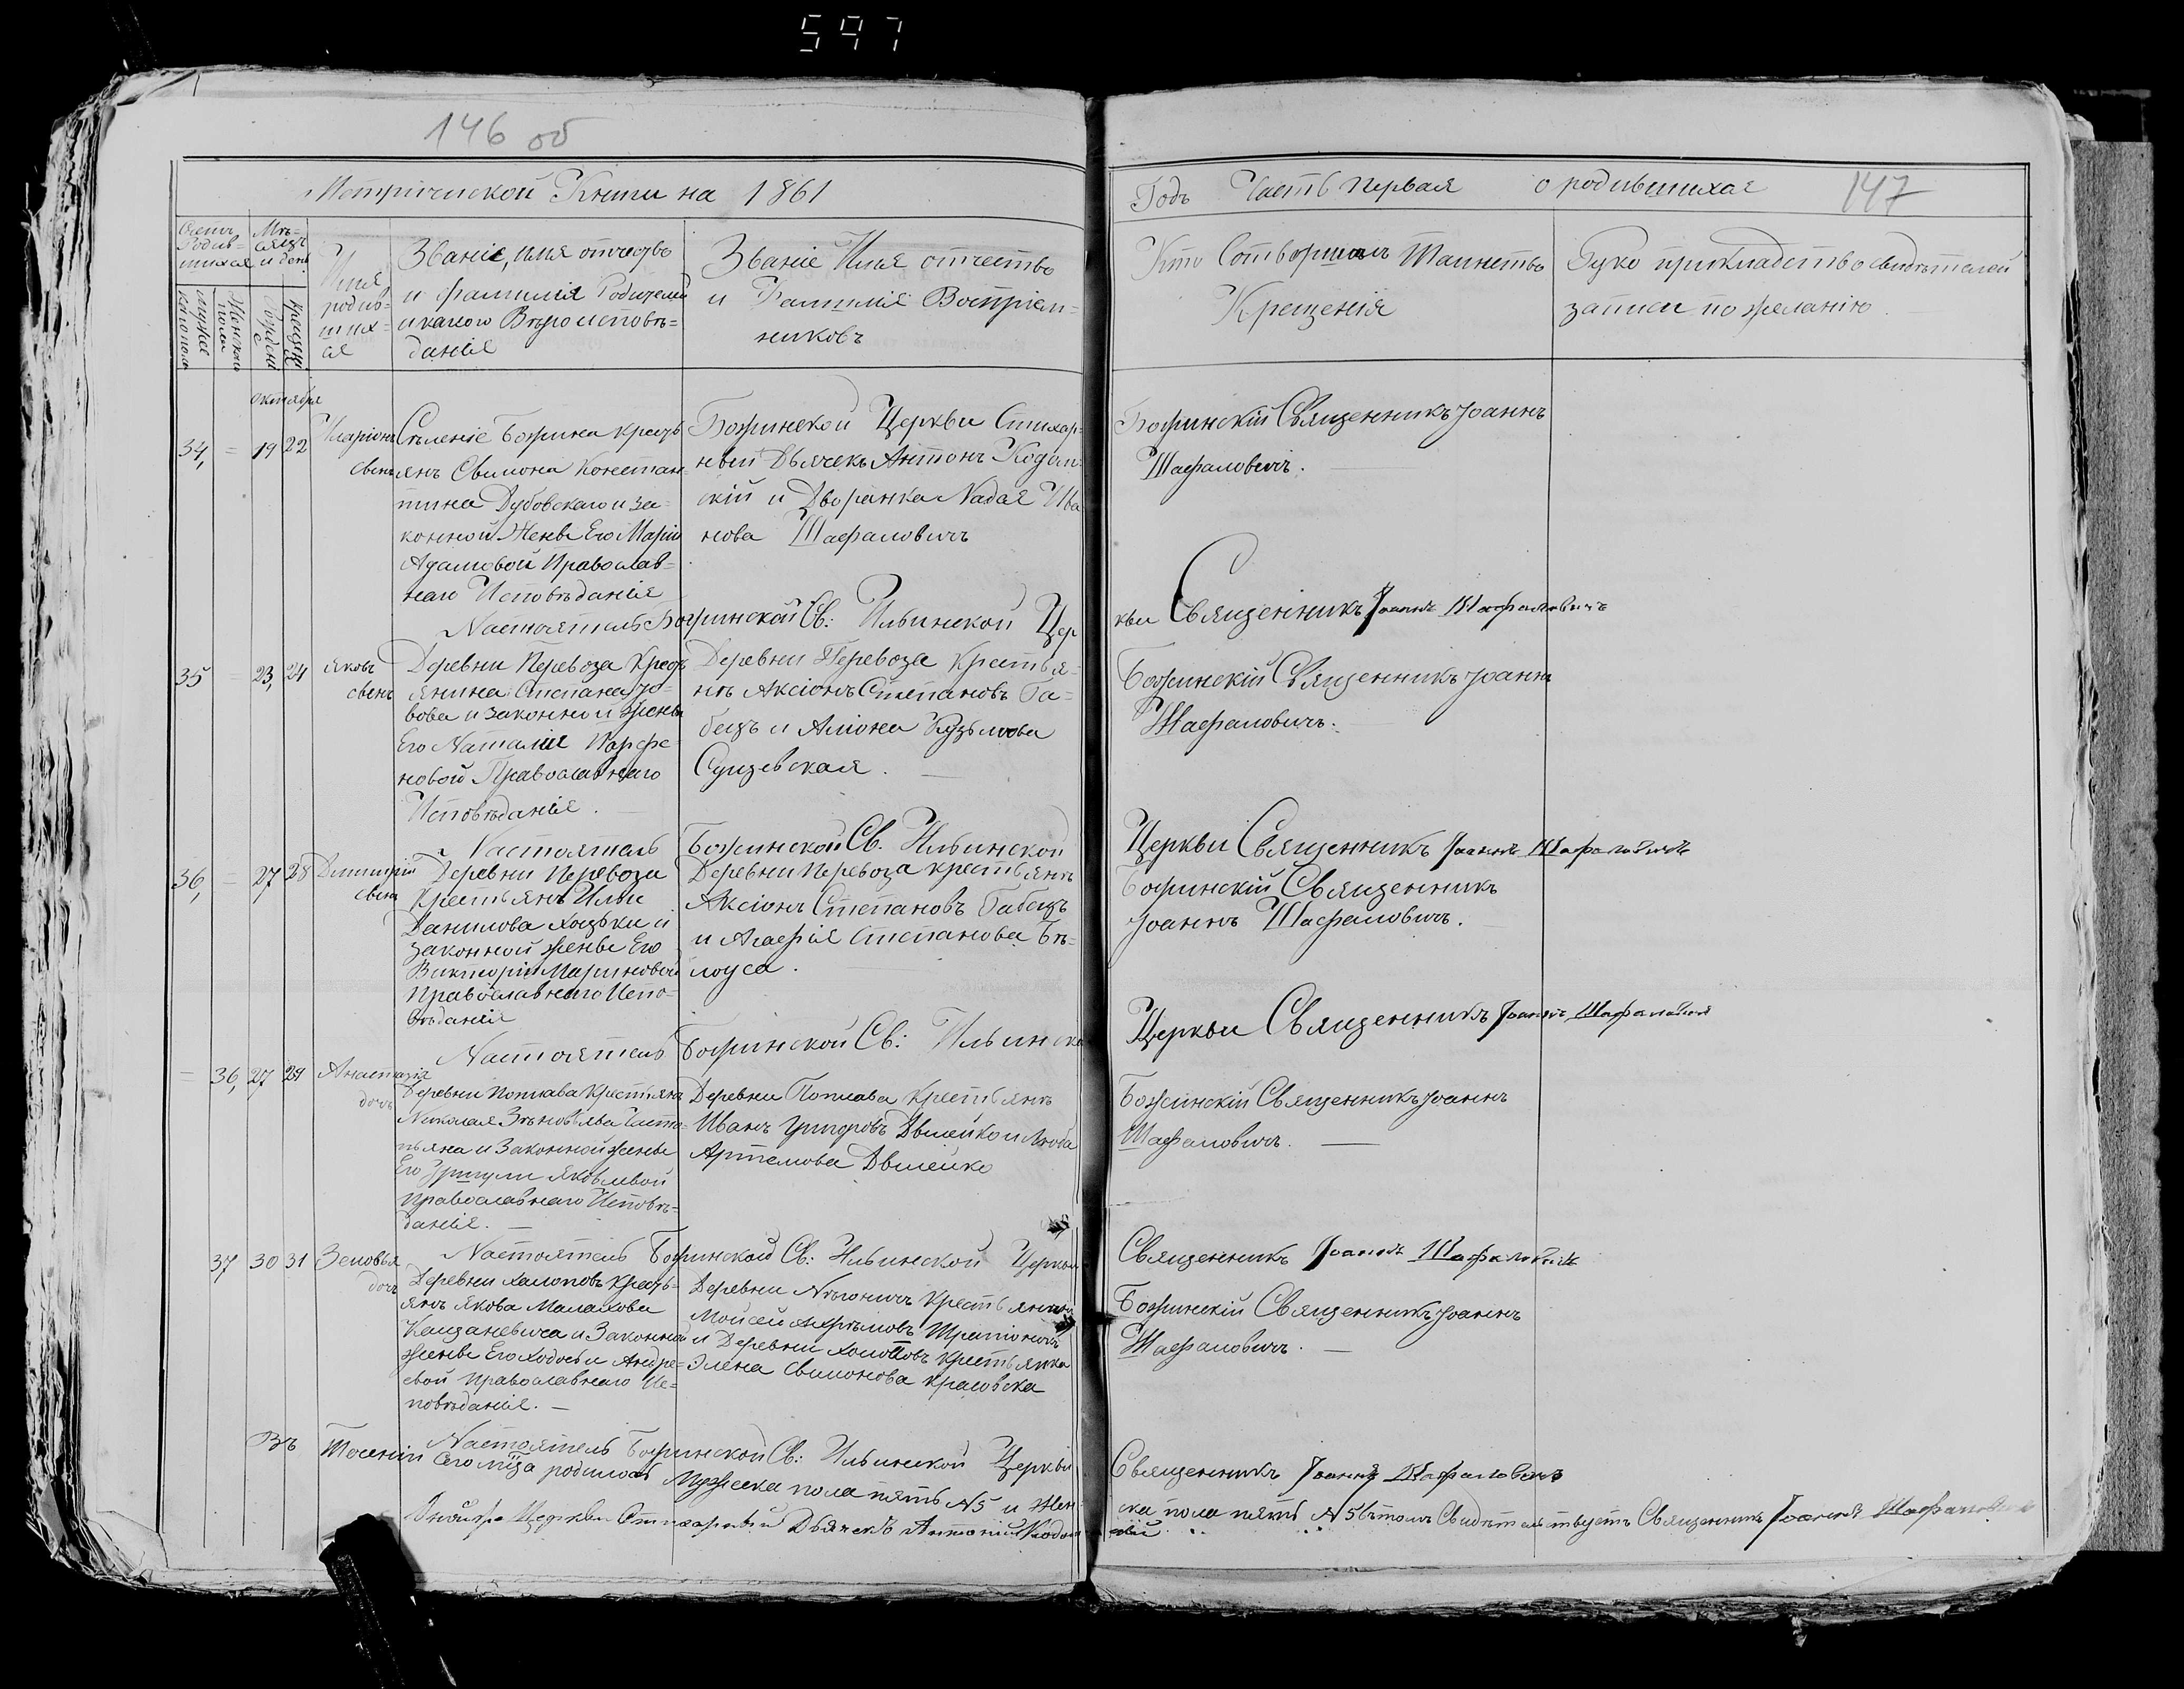 597
146 об
Метрической Книги на 1861
Годъ Часть первая о родившихся
147
Счетъ Родив-шихся
Мѣ-сяцъ и день
Мужес каго пола
Женскаго пола
Рожденія
Крещенія
Имя родив-ших-ся
Званіе, имя отчество
и фамилія Родителей
и какого Вѣроисповѣ-
данія
Званіе Имя отчество
и Фамилія Воспріем-
никовъ
Кто Совершалъ Таинство
Крещенія
Руко прикладство свидѣтелей
записи по желанію
октября
34, = 19 22
Иларіонъ
свенъ
Селеніе Божина крест
янъ Свимона Констан-
тина Дубовскаго и за-
конной Женѣ Его Маріи
Адамовой Православ-
наго Исповѣданія
Божинской Церкви Стихар-
ный Дьячекъ Антонъ
скій и Дворянка Ива
нова Шафаловичъ
Божинскій Священникъ Іоаннъ
Шафаловичъ.
Настоятель Божинской Св: Ильинской Цер
кви Священникъ Іоаннъ Шафаловичъ
35 = 23, 24
Яковъ
свенъ
Деревни Перевоза Крест
янина Степана
вова и законной жены
Его Наталіи Парфе-
новой Православнаго
Исповѣданія.
Деревни Перевоза Крестья-
нъ Аксіонъ Степановъ Ба-
бецъ и Кузьмова
Сущевская.
Божинскій Священникъ Іоаннъ
Шафаловичъ.
Настоятель Божинской Св. Ильинской
Церкви Священникъ Іоаннъ Шафаловичъ
36, = 27 28
Димитрій
свенъ
Деревни Перевоза
Крестьянъ Ильи
Данилова и
законной женѣ Его
Викторіи Мариновой
Православнаго Испо-
вѣданія
Деревни Перевоза крестьянъ
Аксіонъ Степановъ Бабецъ
и Агафія Степанова Бѣ-
лоуса.
Божинскій Священникъ
Іоаннъ Шафаловичъ.
Настоятель Божинской Св: Ильинско
Церкви Священникъ Іоаннъ Шафаловичъ
= 36, 27 29
Анастазія
дочъ
Деревни Поплава Крестьянъ
Николая
и Законной женѣ
Его Яковлевой
Православнаго Исповѣ-
данія.
Деревни Поплава Крестьянъ
Иванъ Двилейко и Люба
Артемова Двилейко
Божинскій Священникъ Іоаннъ
Шафаловичъ.
Настоятель Божинской Св: Ильинской Церкви
Священникъ Іоаннъ Шафаловичъ
37 30 31
Зеновья
дочъ
Деревни Холоповъ Кресть-
янъ Якова Малахова
Каицаневича и Законной
женѣ Его Ходосьи Андре-
евой Православнаго Ис-
повѣданія.
Деревни Нѣгоничъ Крестьянинъ
Мойсей
и Деревни Холоповъ Крестьянка
Элена Свимонова Красовска
Божинскій Священникъ Іоаннъ
Шафаловичъ.
Настоятель Божинской Св: Ильинской Церкви
Священникъ Іоаннъ Шафаловичъ
Въ Теченіи Сего мца родилось Мужеска пола пять № 5 и Жен
ска пола пять № 5 въ томъ Свидѣтельствуетъ Священникъ Іоаннъ Шафаловичъ
Церкви Стихарный Дьячекъ Антоній